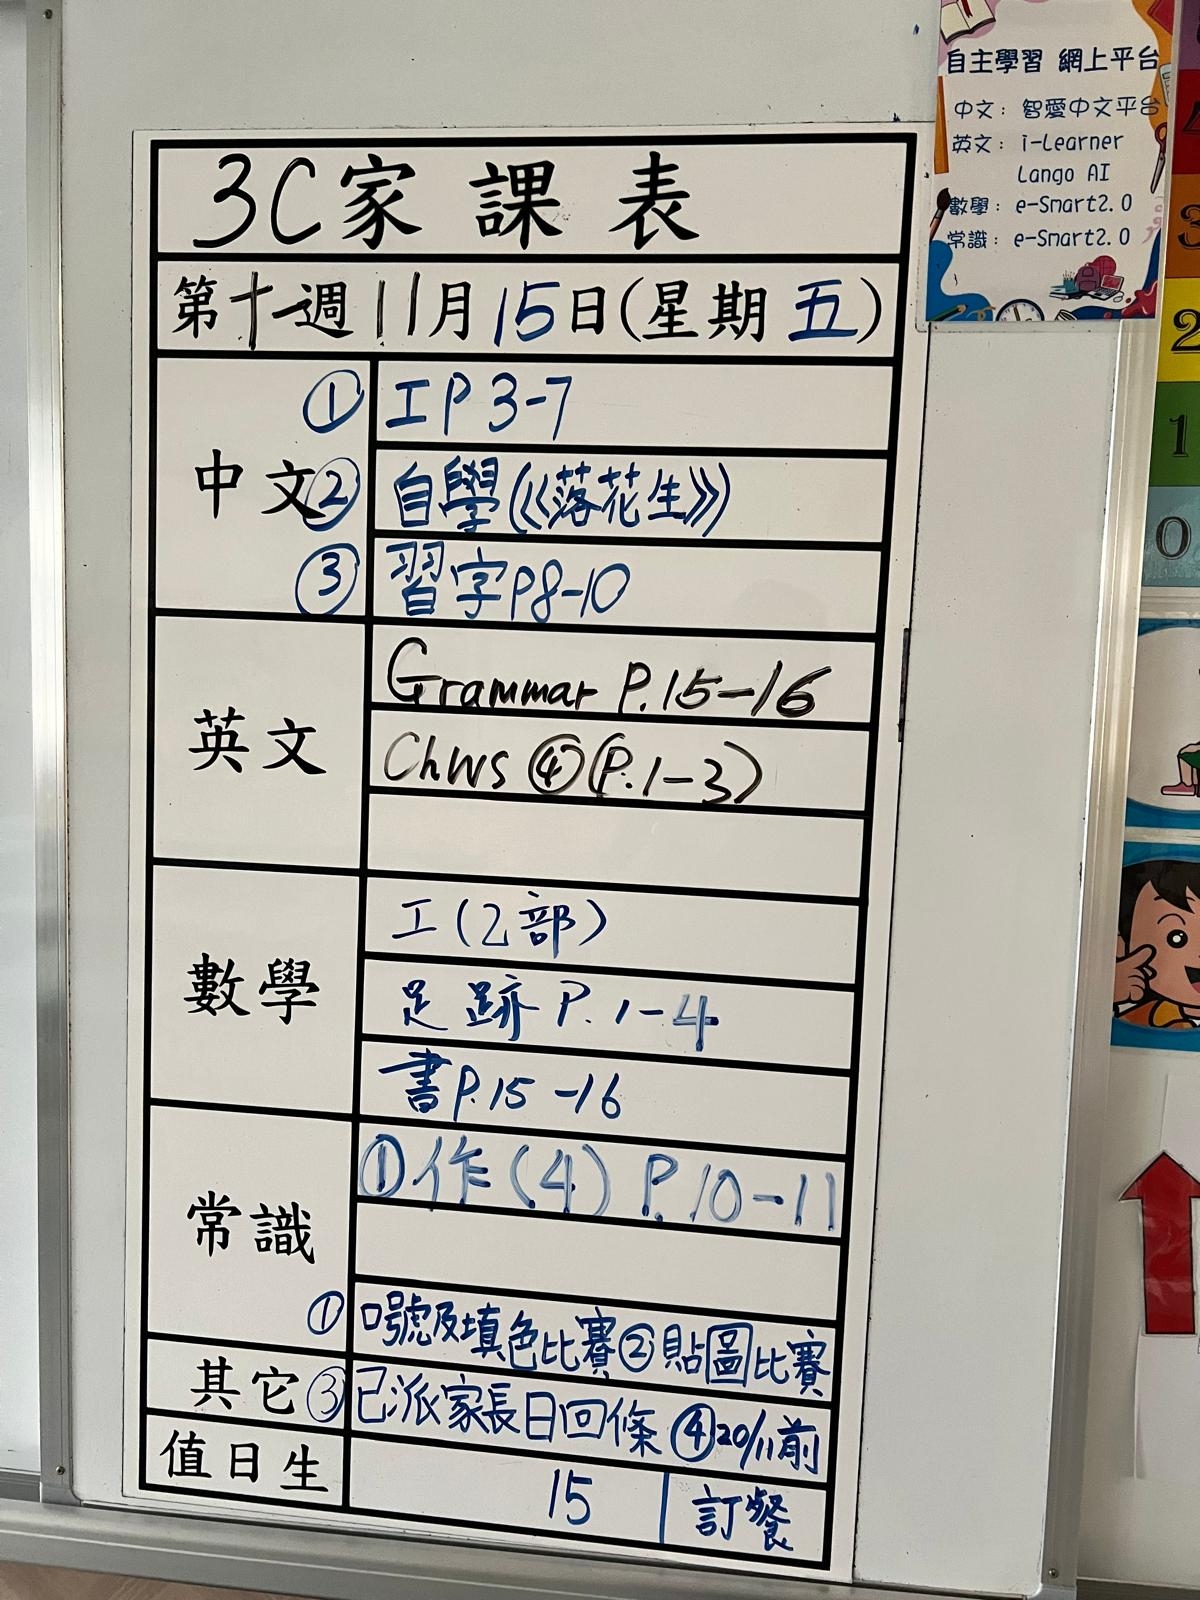 自主學習 網上平台
中文：智愛中文平台
英文：i-Learner
Lango AI
數學：e-Smart2.0
常識：e-Smart2.0
3C家課表
第十週11月15日(星期五)
中文
① 工P3-7
② 自學(《落花生》)
③ 習字P8-10
英文
Grammar P.15-16
Ch WS ④(P.1-3)
數學
工(2部)
足跡 P.1-4
書P.15-16
常識
①作(4) P.10-11
其它
①口號及填色比賽②貼圖比賽
③已派家長日回條 ④20/11前
訂餐
值日生
15
3
2
1
0